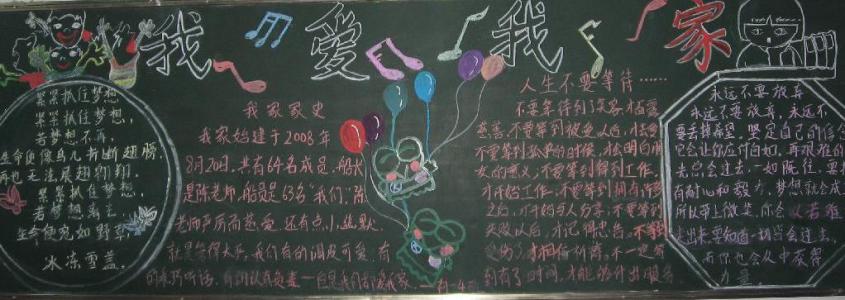 我爱我家
紧紧抓住梦想,
紧紧抓住梦想,
若梦想不再,
生命便像鸟儿折断翅膀,
再也无法展翅翱翔。
紧紧抓住梦想,
若梦想
生命便宛如野草,
冰冻雪盖。
我家家史
我家始建于2008年
8月20日,共有64名成员,船长
是陈老师,船员是63名“我们”,陈
老师严厉而慈爱,还有点小幽默,
我们有的调皮可爱,有
的乖巧听话,有的认真负责——但是我们都爱我家。
人生不要等待……
不要等到
慈善,不要等到被
不要等到孤单的时候,才明白朋
友的意义,不要等到得到工作,
才开始工作,不要等到拥有
之后,才开始与人分享,不要等到
失败以后,才记得忠告,不要等
才相信祈祷,不一定要等
到有了时间,才能够付出服务
永远不要放弃
永远不要放弃,永远不
要丢掉希望,坚定自己的信念
它会让你应付自如,再艰难的
去总会过去,一如既往,要
有耐心和毅力,梦想就会成
所以带上微笑,你会从苦难
走出来,要知道一切当会过去,
而你也会从中获得
力量。